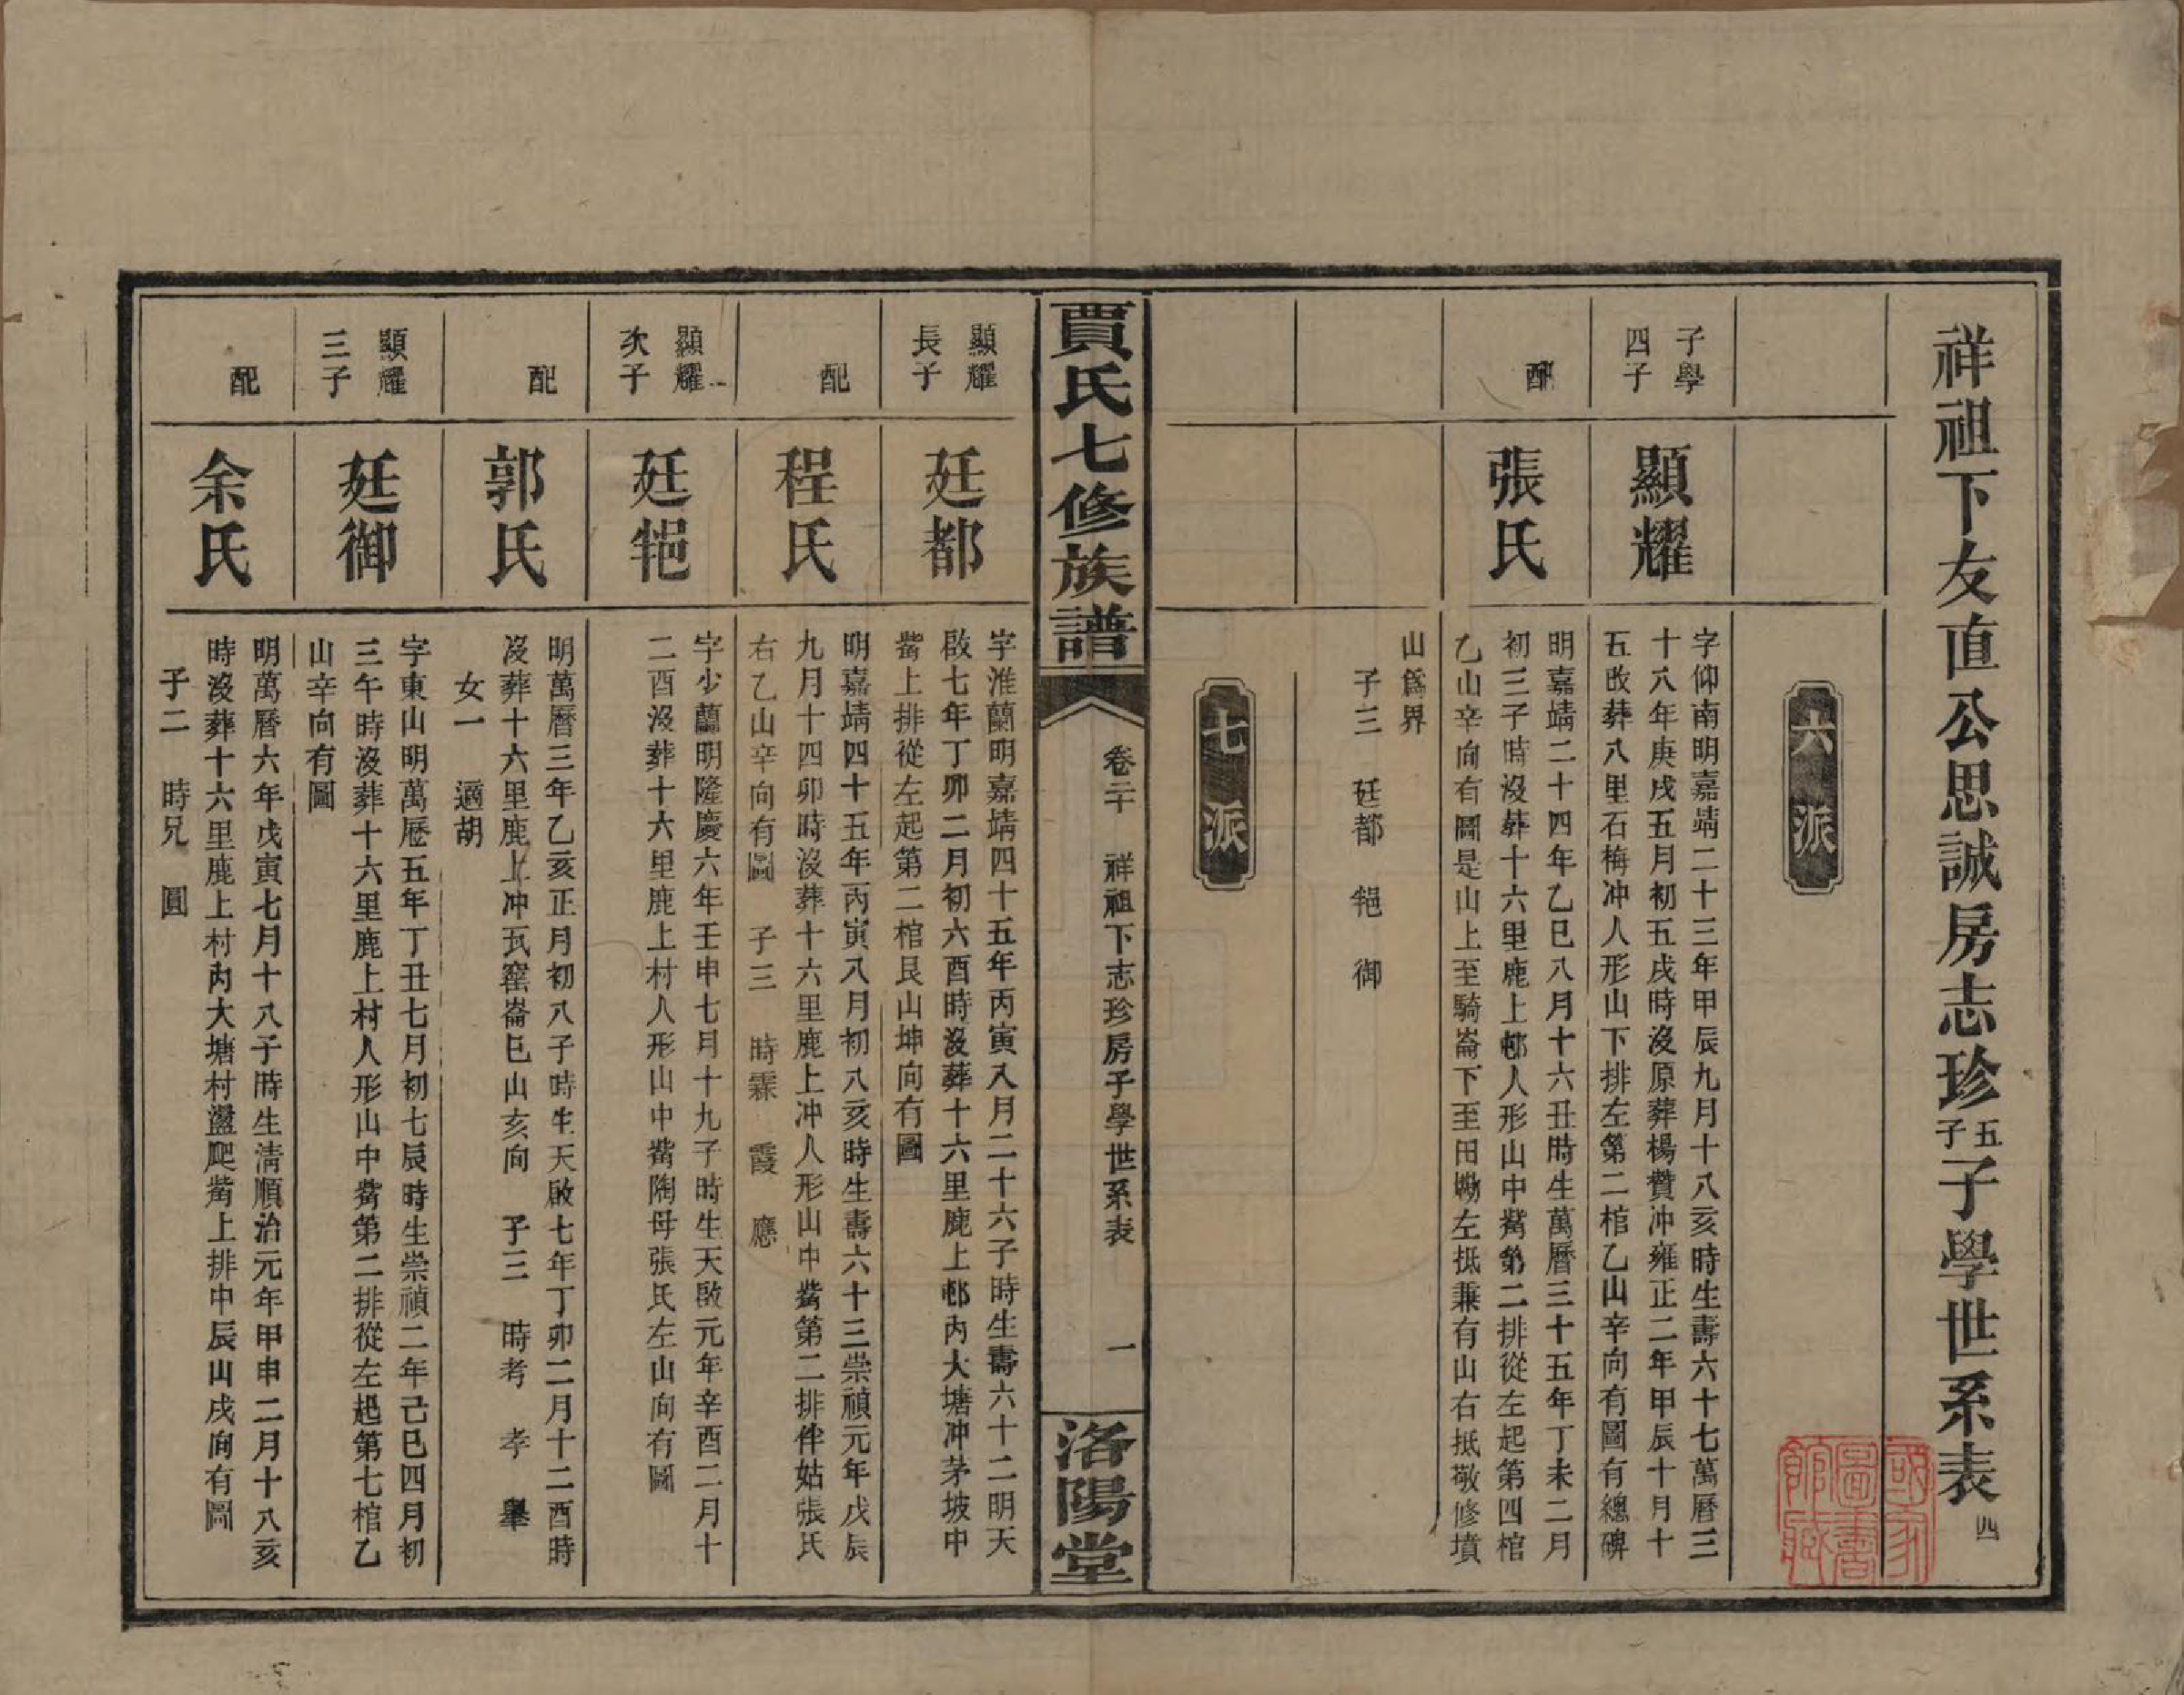 祥祖下友直公思誠房志珍五子子學世系表四
六派
子學四子
顯耀
字仰南明嘉靖二十三年甲辰九月十八亥時生壽六十七萬曆三
十八年庚戌五月初五戌時沒原葬楊贊冲雍正二年甲辰十月十
五改葬八里石梅冲人形山下排左第二棺乙山辛向有圖有總碑
配
張氏
明嘉靖二十四年乙巳八月十六丑時生萬曆三十五年丁未二月
初三子時沒葬十六里鹿上邨人形山中觜第二排從左起第四棺
乙山辛向有圖是山上至騎崙下至田塝左抵兼有山右抵敬修墳
山爲界
子三 廷都 𤙴 御
七派
賈氏七修族譜
卷二十 祥祖下志珍房子學世系表 一
洛陽堂
顯耀長子
廷都
字淮蘭明嘉靖四十五年丙寅八月二十六子時生壽六十二明天
啟七年丁卯二月初六酉時沒葬十六里鹿上邨內大塘冲茅坡中
觜上排從左起第二棺艮山坤向有圖
配
程氏
明嘉靖四十五年丙寅八月初八亥時生壽六十三崇禎元年戊辰
九月十四卯時沒葬十六里鹿上冲人形山中觜第二排伴姑張氏
右乙山辛向有圖 子三 時霖 霞 應
顯耀次子
廷𤙴
字少蘭明隆慶六年壬申七月十九子時生天啟元年辛酉二月十
二酉沒葬十六里鹿上村人形山中觜陶母張氏左山向有圖
配
郭氏
明萬曆三年乙亥正月初八子時生天啟七年丁卯二月十二酉時
沒葬十六里鹿上冲瓦窰崙巳山亥向 子三 時考 孝 舉
女一 適胡
顯耀三子
廷御
字東山明萬厯五年丁丑七月初七辰時生崇禎二年己巳四月初
三午時沒葬十六里鹿上村人形山中觜第二排從左起第七棺乙
山辛向有圖
配
余氏
明萬曆六年戊寅七月十八子時生清順治元年甲申二月十八亥
時沒葬十六里鹿上村內大塘村盪爬觜上排中辰山戌向有圖
子二 時兄 圓
國家圖書館藏